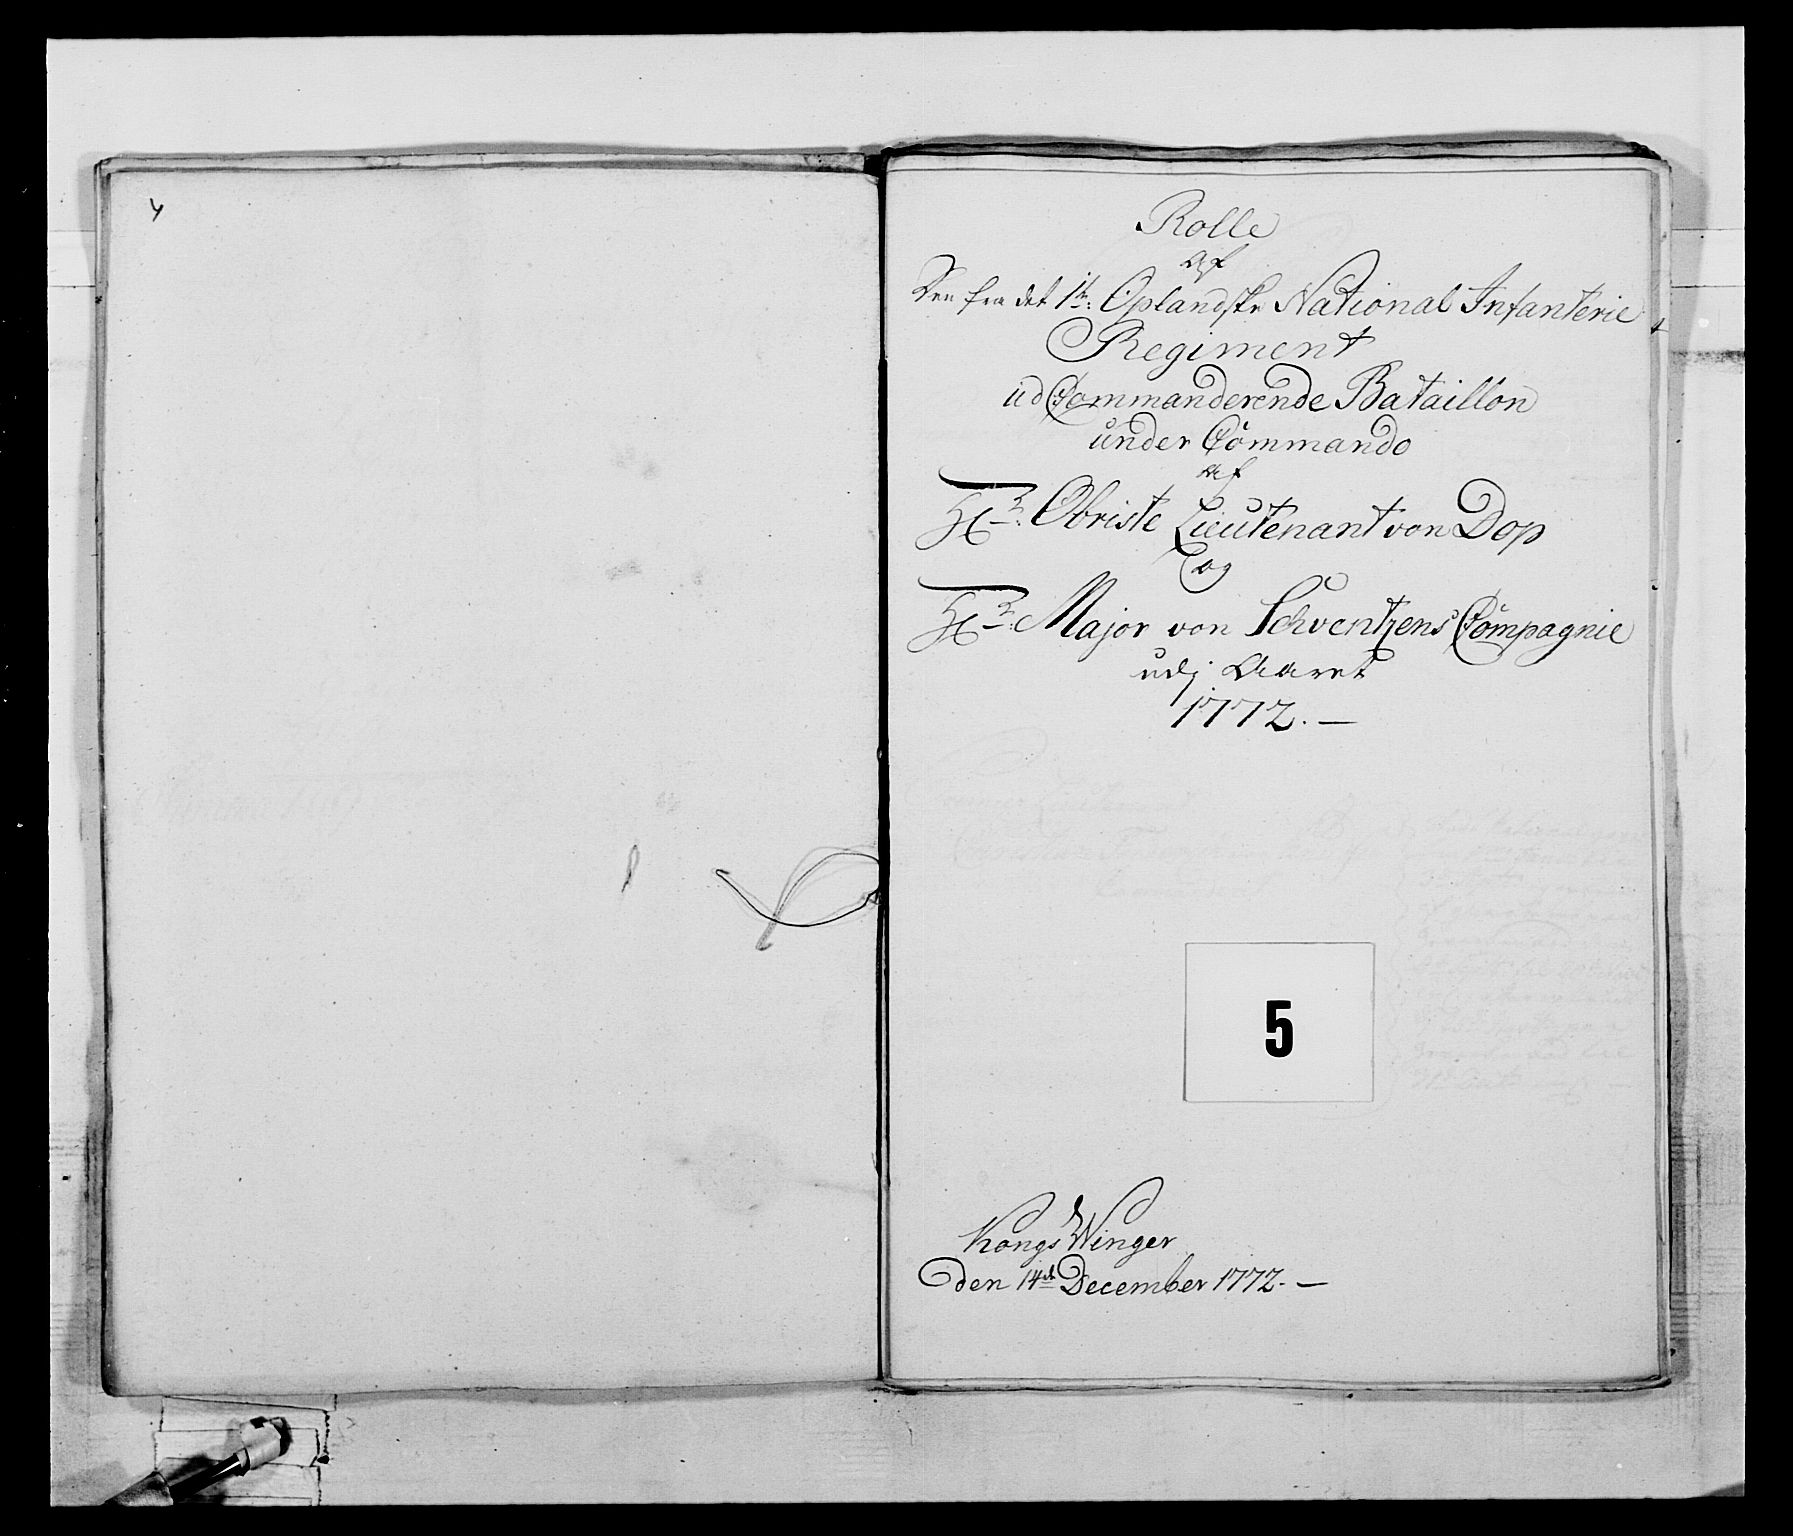 4
Rolle
Af
Den fra det 1te: Oplandske National Infanterie
Regiment
ud Commanderende Bataillon
under Commando
Af
Hr: Obriste Lieutenant von Dop
og
Hr: Major von Schventzens Compagnie
udj Aaret
1772. —
5
Kongs Winger
den 14de December 1772. —